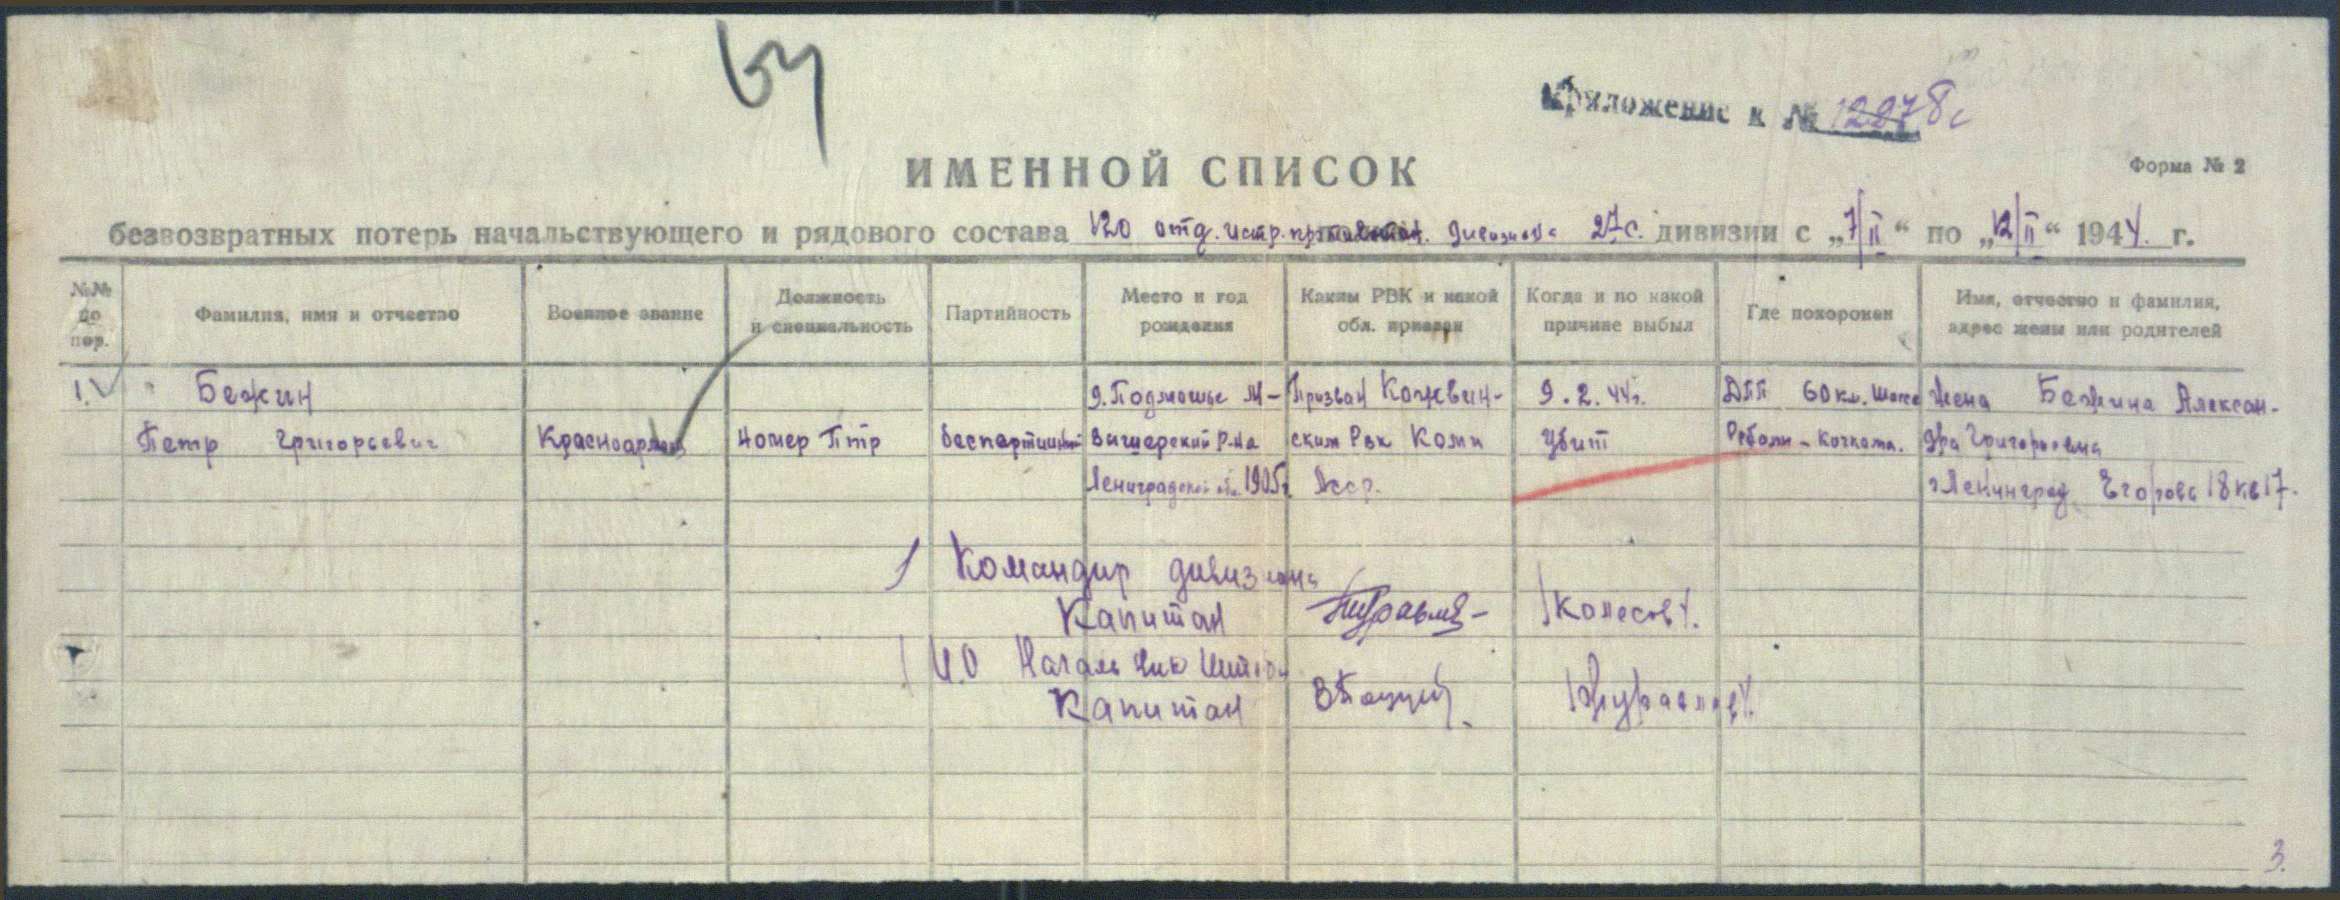 Приложение к № 12278с
ИМЕННОЙ СПИСОК
Форма № 2
безвозвратных потерь начальствующего и рядового состава 120 отд. истр. дивизиона 27 с. дивизии с „7/II“ по „12/II“ 1944 г.
№№ по пор.
Фамилия, имя и отчество
Военное звание
Должность и специальность
Партийность
Место и год рождения
Каким РВК и какой обл. призван
Когда и по какой причине выбыл
Где похоронен
Имя, отчество и фамилия, адрес жены или родителей
1. Бежин
Петр Григорьевич
Красноармеец
Номер ПТР
беспартийный
д. Подмошье М-
Вишерский р-на
Ленинградской обл. 1905г.
Призван Кожвин-
ским Рвк Коми
Асср.
9.2.44г.
Убит
ДПП 60 км. Шоссе
Реболы - Кочкома.
Жена Бежина Алексан-
дра Григорьевна
г Ленинград Егорова 18 кв 17.
Командир дивизиона
Капитан /Колесов/.
И.О Начальник Штаба
Капитан /Журавлев/.
3.